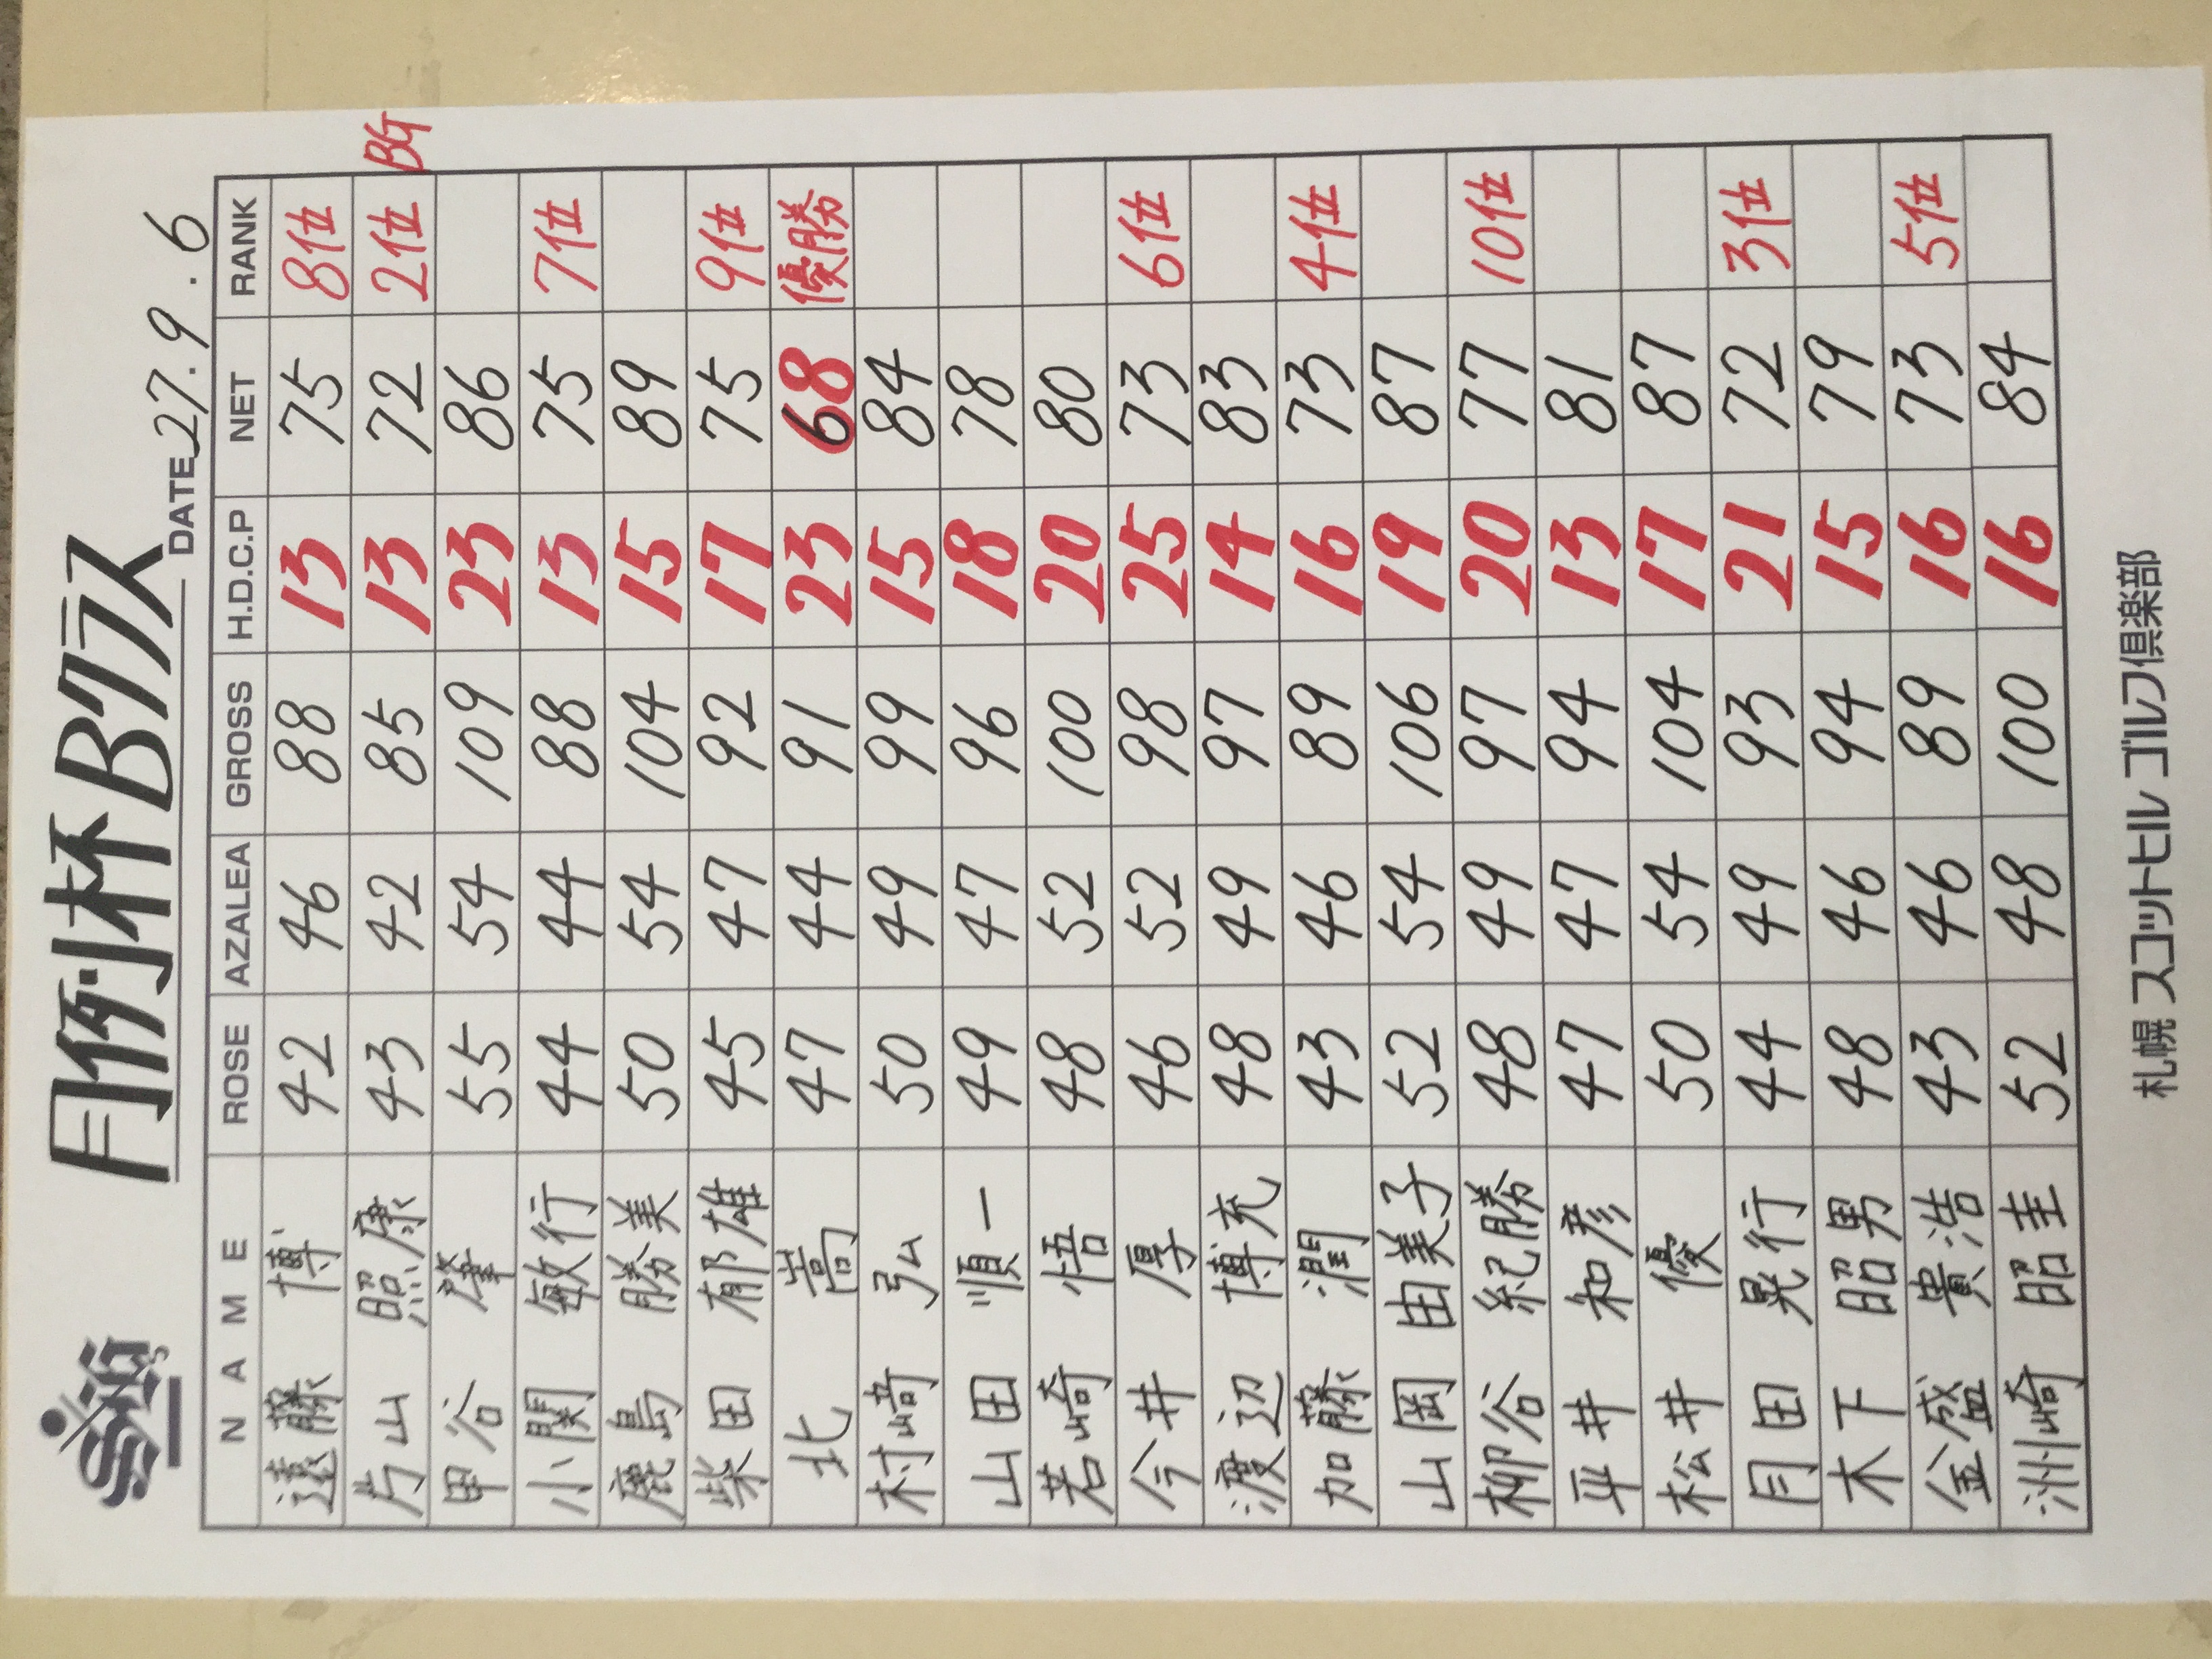 月例杯Bクラス
DATE 27.9.6
NAME ROSE AZALEA GROSS H.D.C.P NET RANK
遠藤 博 42 46 88 13 75 8位
片山 照康 43 42 85 13 72 2位 BG
甲谷 肇 55 54 109 23 86
小関 敏行 44 44 88 13 75 7位
鹿島 勝美 50 54 104 15 89
柴田 郁雄 45 47 92 17 75 9位
北 嵩 47 44 91 23 68 優勝
村﨑 弘 50 49 99 15 84
山田 順一 49 47 96 18 78
若崎 悟 48 52 100 20 80
今井 厚 46 52 98 25 73 6位
渡辺 博充 48 49 97 14 83
加藤 潤 43 46 89 16 73 4位
山岡 由美子 52 54 106 19 87
柳谷 紀勝 48 49 97 20 77 10位
平井 和彦 47 47 94 13 81
松井 優 50 54 104 17 87
月田 晃行 44 49 93 21 72 3位
木下 昭男 48 46 94 15 79
金盛 貴浩 43 46 89 16 73 5位
洲崎 昭圭 52 48 100 16 84
札幌 スコットヒル ゴルフ倶楽部